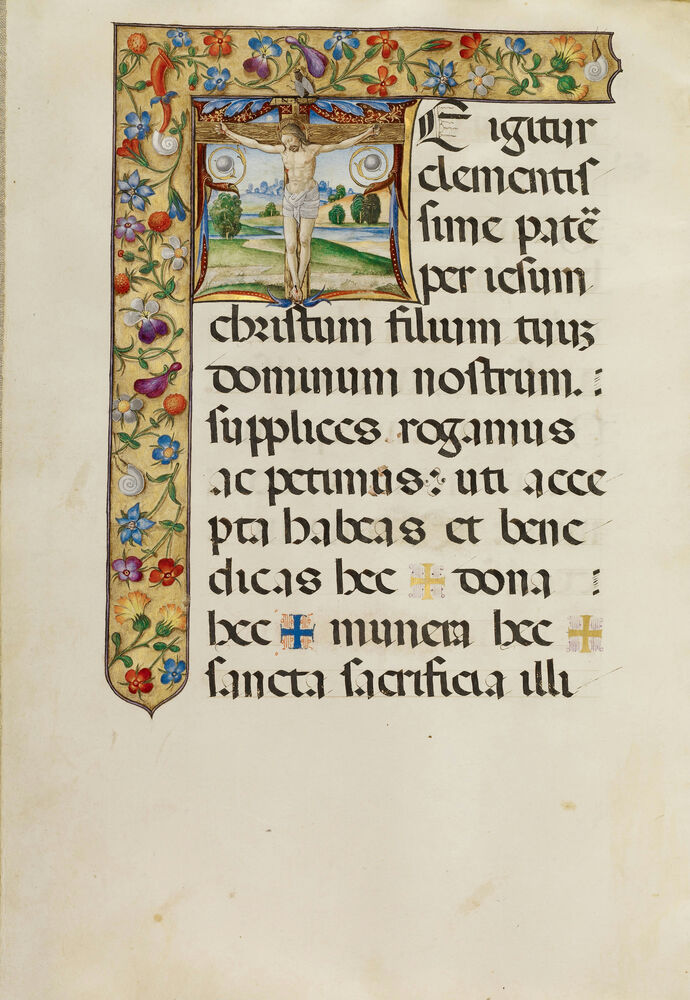 TE igitur
clementis
sime pate᷒
per iesum
christum filium tuuʒ
dominum nostrum. :
supplices rogamus
ac petimus: uti acce
pta habeas et bene
dicas hec ✠ dona :
hec ✠ munera hec ✠
sancta sacrificia illi